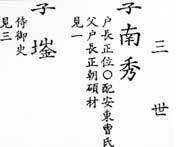 三世
子南秀
户長正位○配安東曹氏
父户長正朝碩材
見一
子𡎴
侍御史
見三